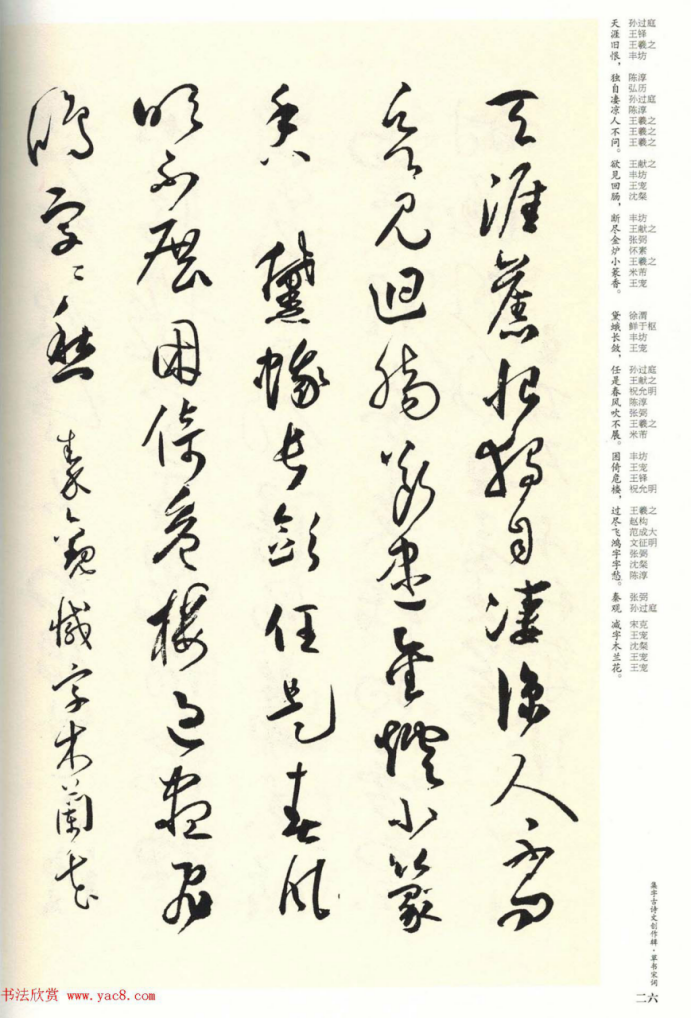 天涯舊恨獨自凄涼人不問
欲見迴腸斷盡金爐小篆
香 黛蛾長斂任是春風
吹不展困倚危樓過盡飛
鴻字〻愁 秦觀減字木蘭花
天涯旧恨，
孙过庭
王铎
王羲之
丰坊
独自凄凉人不问。
陈淳
弘历
孙过庭
陈淳
王羲之
王羲之
王羲之
欲见回肠，
王献之
丰坊
王宠
沈粲
断尽金炉小篆香。
丰坊
王献之
张弼
怀素
王羲之
米芾
王宠
黛蛾长敛，
徐渭
鲜于枢
丰坊
王宠
任是春风吹不展。
孙过庭
王献之
祝允明
陈淳
张弼
王羲之
米芾
困倚危楼，
丰坊
王宠
王铎
祝允明
过尽飞鸿字字愁。
王羲之
赵构
范成大
文征明
张弼
沈粲
陈淳
秦观
张弼
孙过庭
减字木兰花。
宋克
王宠
沈粲
王宠
王宠
集字古诗文创作辑·草书宋词
二六
书法欣赏 www.yac8.com